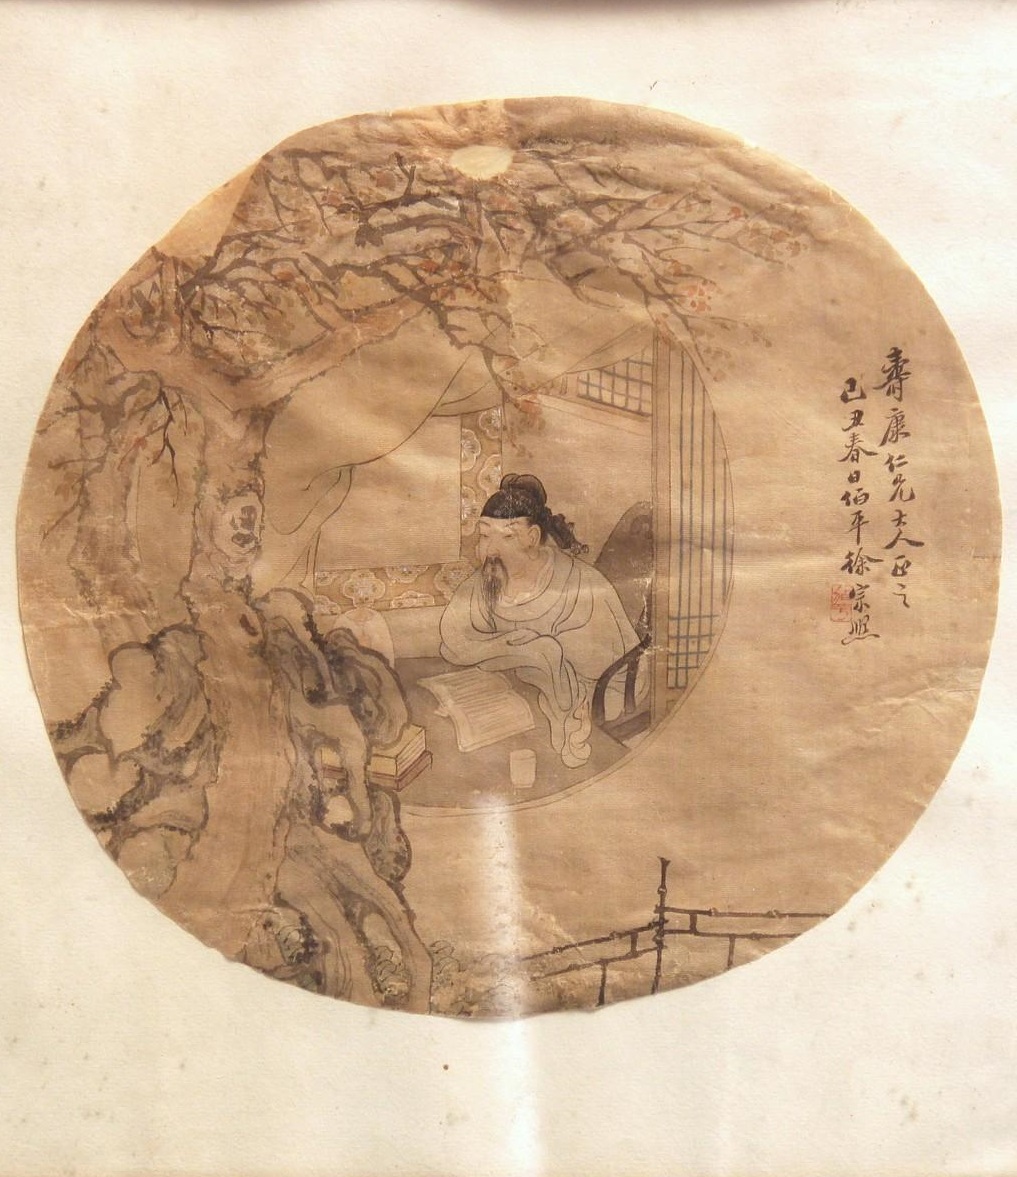 壽康仁兄大人正之
己丑春日佰平徐宗熙